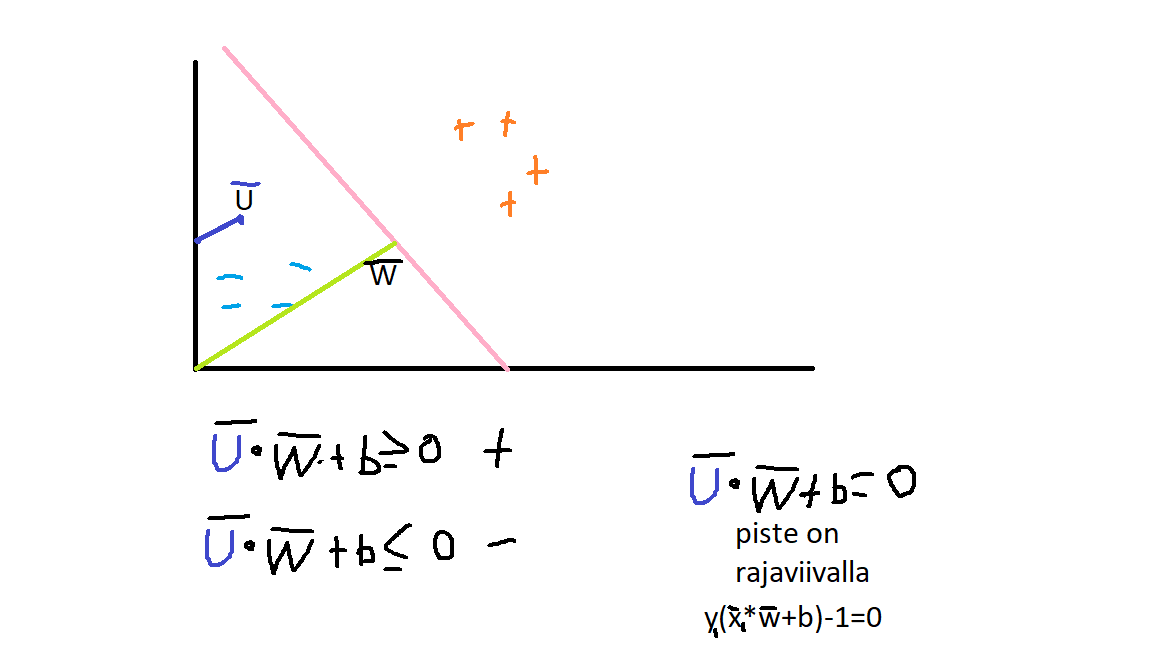 U̅
W̅
U̅·W̅+b≥0 +
U̅·W̅+b≤0 −
U̅·W̅+b=0
piste on
rajaviivalla
yᵢ(x̅ᵢ*w̅+b)-1=0